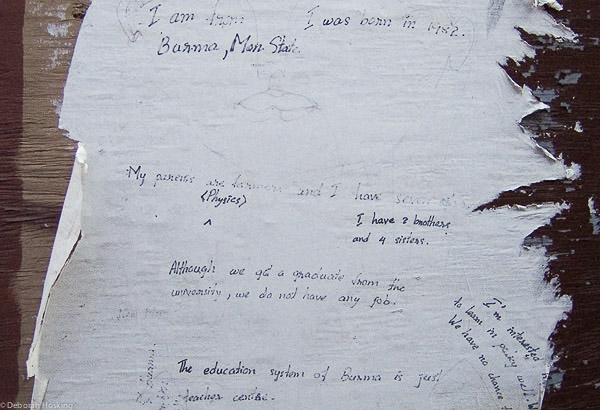 I am from I was born in 1982.
Burma, Mon State.
My parents are farmers and I have seven
(Physics)
^
I have 2 brothers
and 4 sisters.
Although we get a graduate from the
university, we do not have any job.
I'm interested
to learn in poetry well
We have no chance
The education system of Burma is just
teacher centre.
© Deborah Hosking